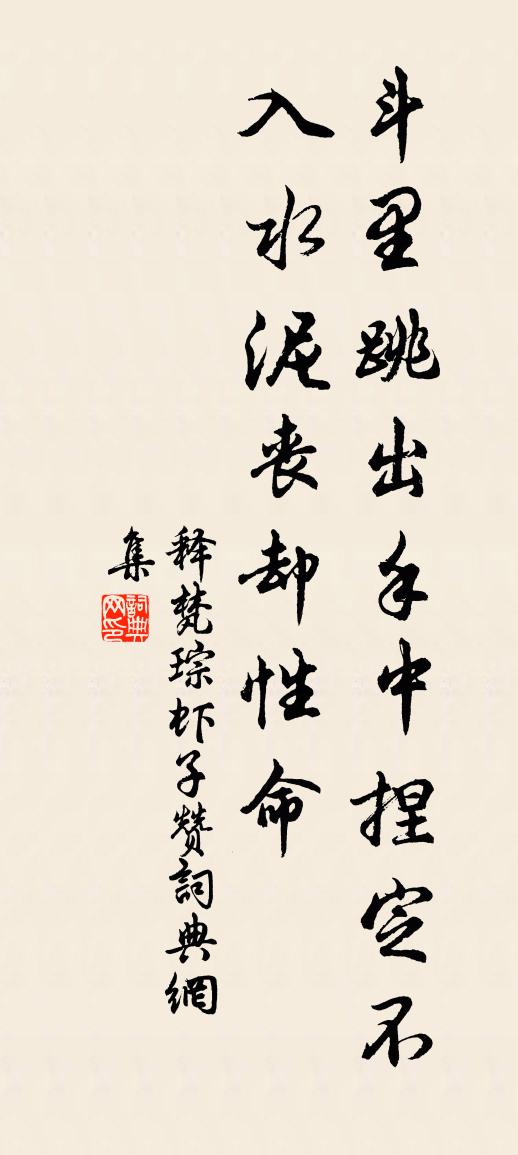 斗里跳出手中捏定不
入水泥丧却性命
释梵琮虾子赞詞典網
集
詞典网印